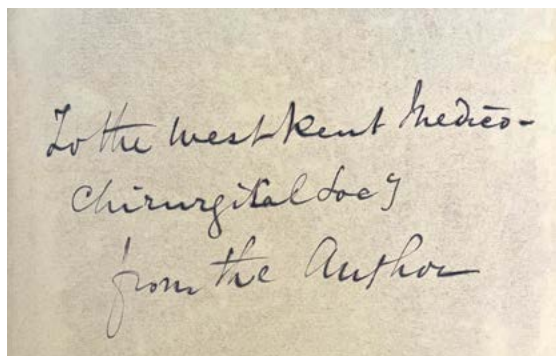 To the West Kent Medico-
Chirurgical Socy
from the Author